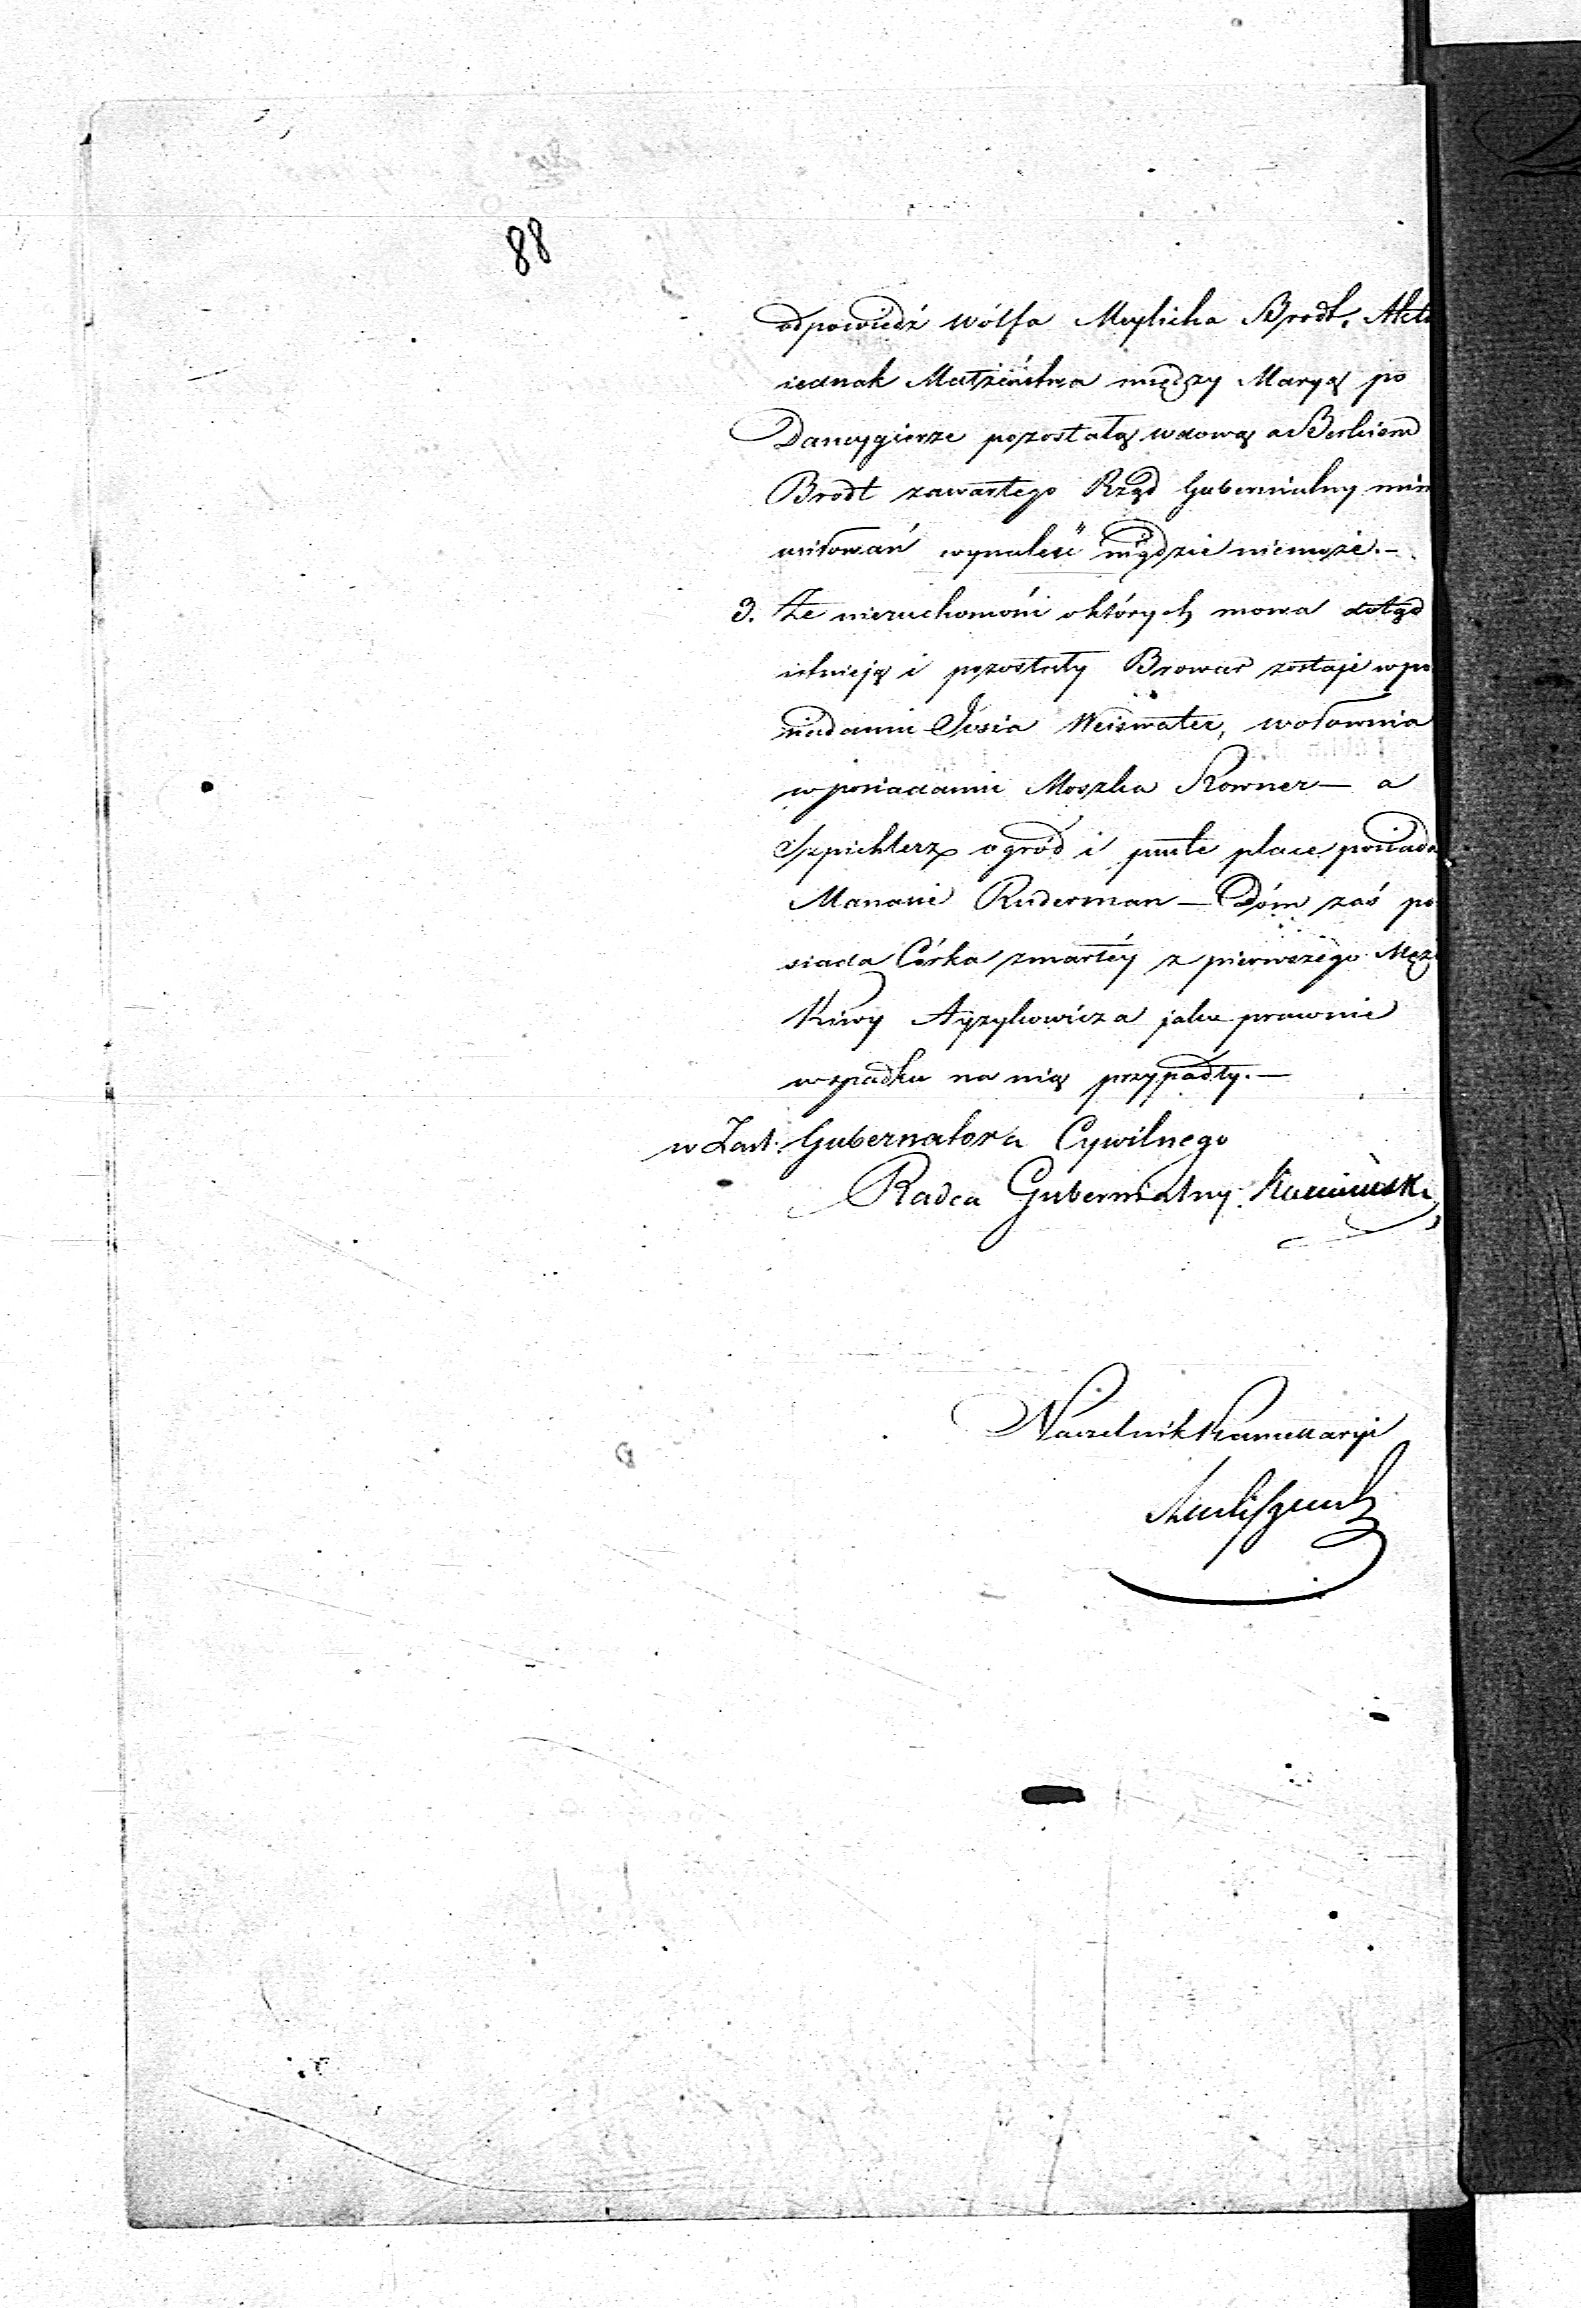 88
odpowiedź Wólfa Meylicha Brodt, Akto
iednak Małżeństwa między Maryą po
Dancygierze pozostałą wdową a Berkiem
Brodt zawartego Rząd Gubernialny mim
usiłowań wynaleść nigdzie niemoże.—
3. Że nieruchomości o których mowa dotąd
istnieją i pozostały Browar zostaje w po
siadaniu Josia Weiswater, wołownia
w posiadaniu Moszka Rowner — a
Szpichlerz ogród i puste place posiada
Manasie Ruderman — Dóm zaś po
siada Córka zmarłéy z pierwszego Męż
Kiwy Ayzykowicza jako prawnie
w spadku na nią przypadły.—
w Zast. Gubernatora Cywilnego
Radca Gubernialny
Naczelnik Kancellaryi